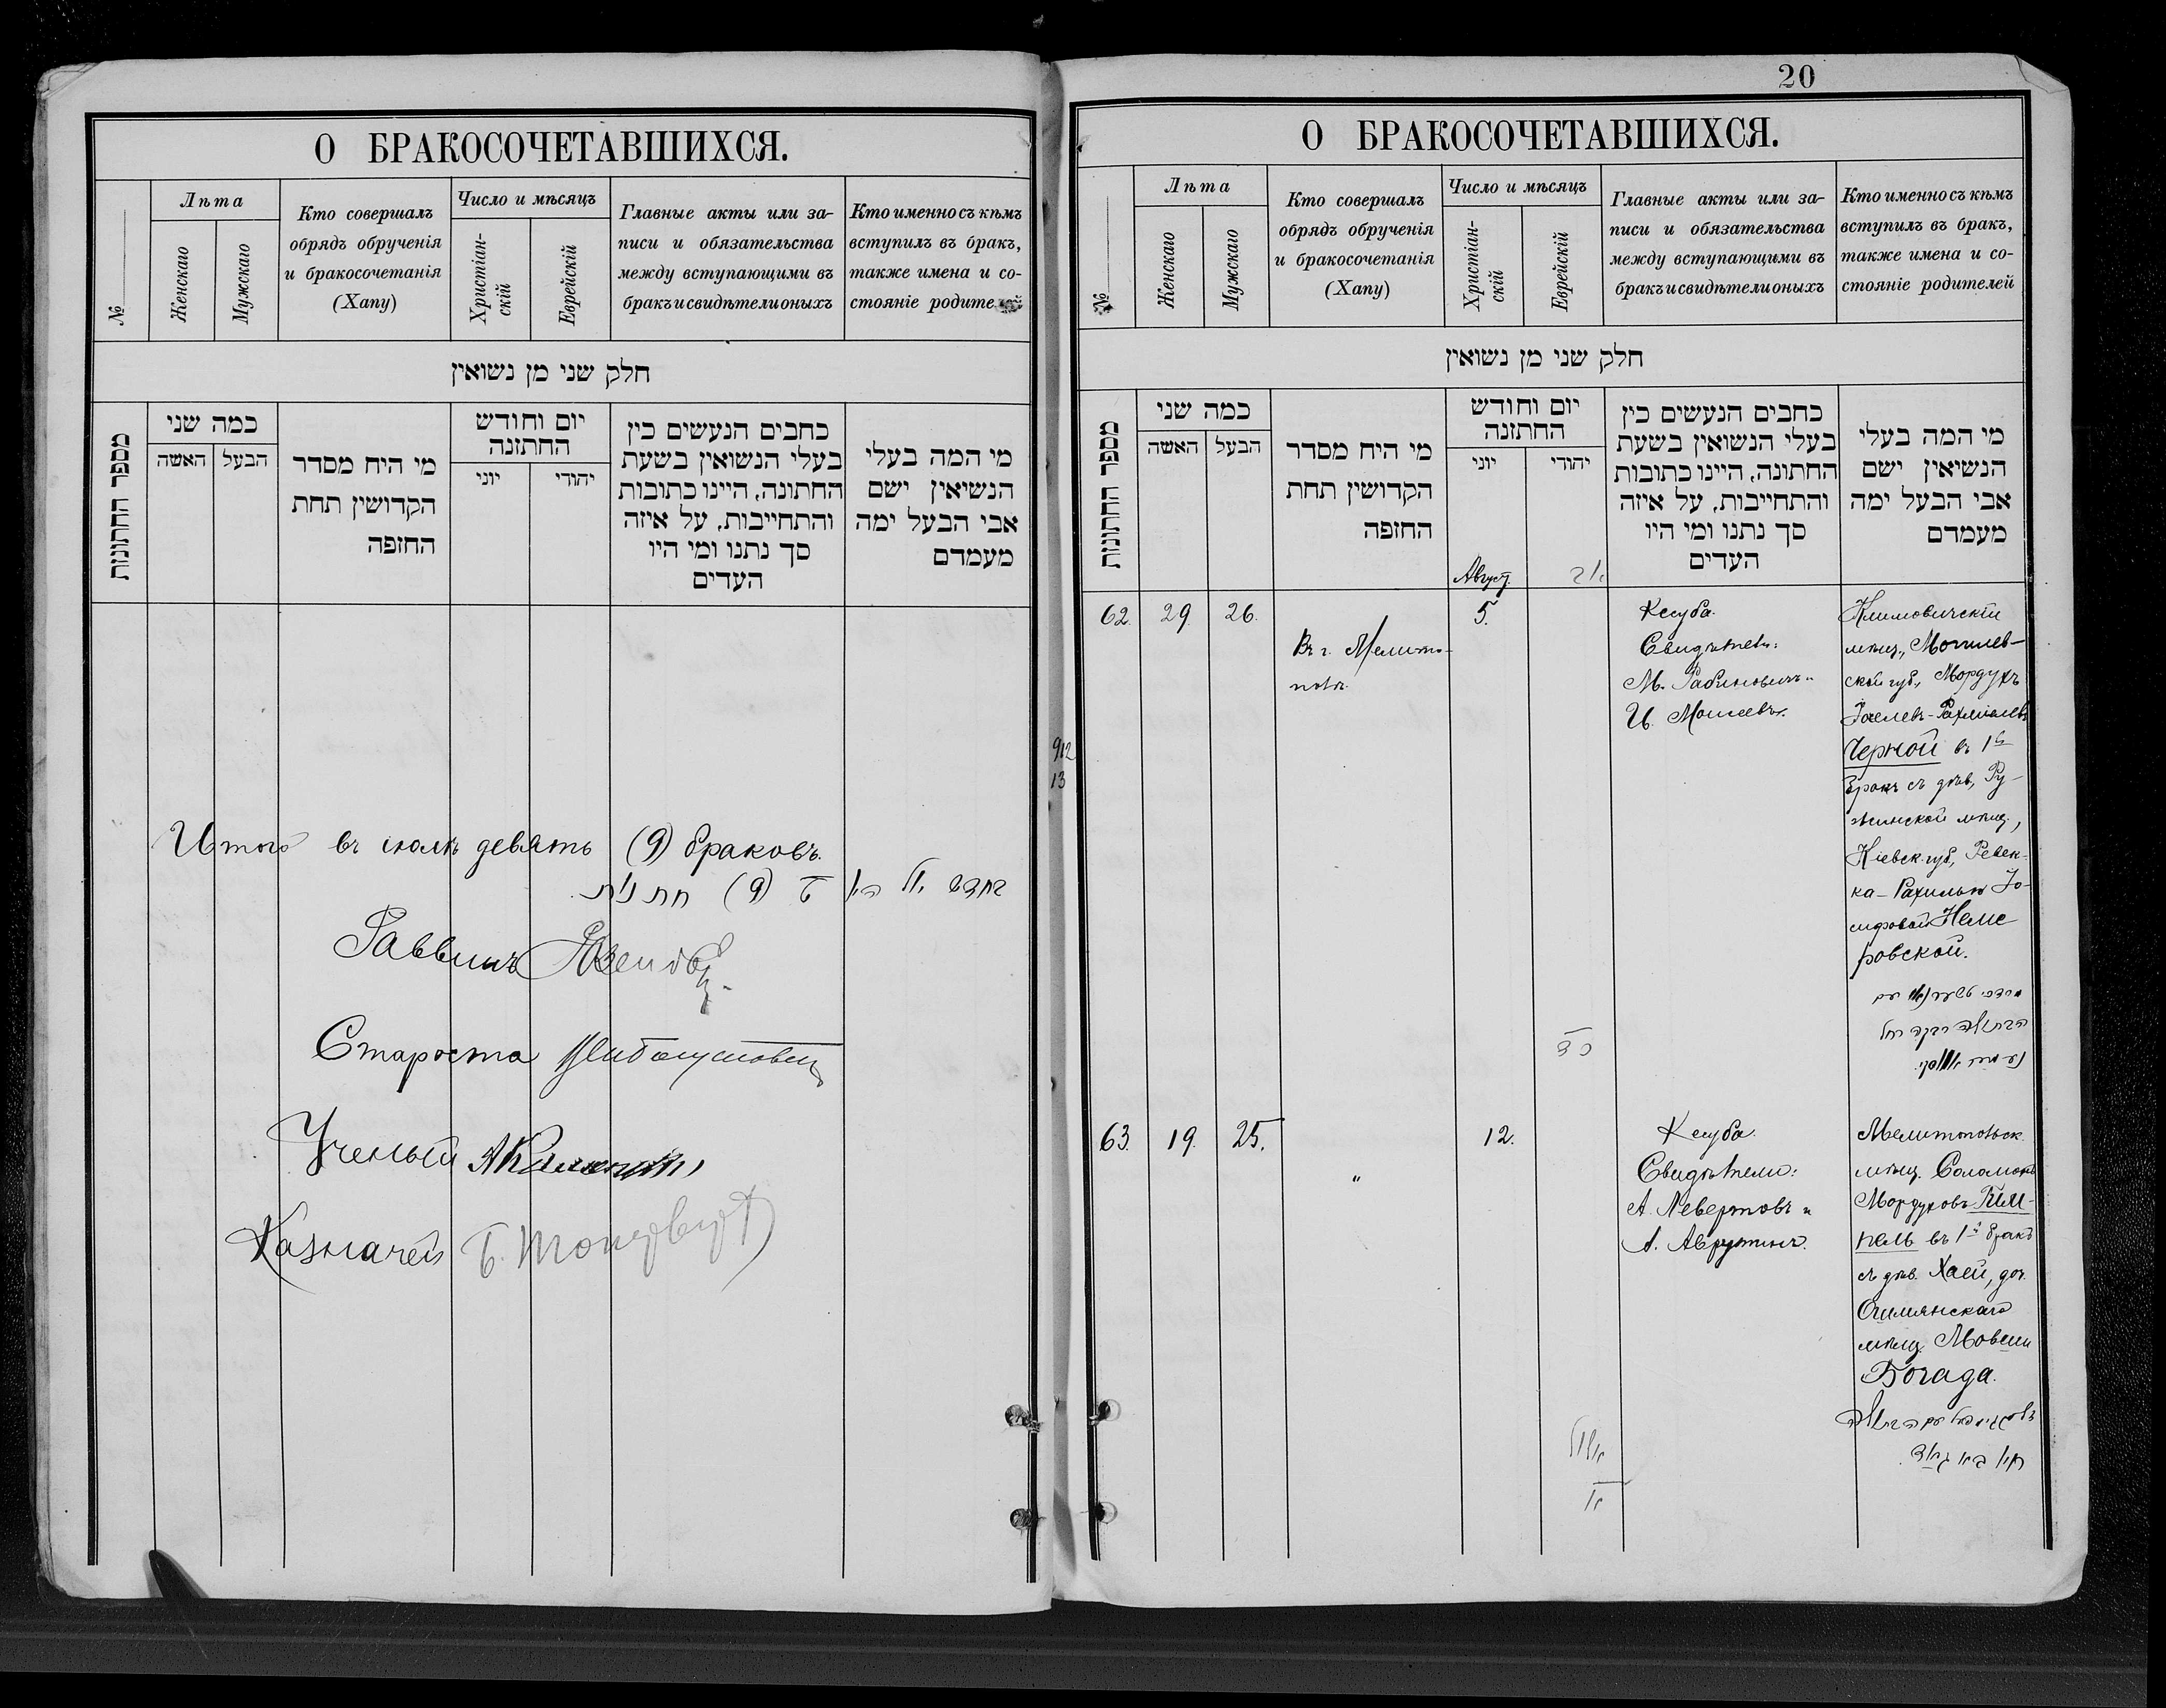 О БРАКОСОЧЕТАВШИХСЯ.
№
Лѣта
Женскаго
Мужскаго
Кто совершалъ
обрядъ обрученія
и бракосочетанія
(Хапу)
Число и мѣсяцъ
Христіан-
скій
Еврейскій
Главные акты или за-
писи и обязательства
между вступающими въ
бракъ и свидѣтели оныхъ
Кто именно съ кѣмъ
вступилъ въ бракъ,
также имена и со-
стояніе родителей
חלק שני מן נשואין
מספר החתונות
כמה שני
האשה
הבעל
מי היח מסדר
הקדושין תחת
החזפה
יום וחודש
החתזנה
יוני
יהודי
כחבים הנעשים כין
בעלי הנשואין בשעת
החתונה, היינו כתובות
והתחייבות, על איזה
סך נתנו ומי היו
העדים
מי המה בעלי
הנשיאין ישם
אבי הבעל ימה
מעמדם
Итого въ іюлѣ девять (9) браковъ.
(9)
Раввинъ
Староста
Ученый
Казначей
20
О БРАКОСОЧЕТАВШИХСЯ.
№
Лѣта
Женскаго
Мужскаго
Кто совершалъ
обрядъ обрученія
и бракосочетанія
(Хапу)
Число и мѣсяцъ
Христіан-
скій
Еврейскій
Главные акты или за-
писи и обязательства
между вступающими въ
бракъ и свидѣтели оныхъ
Кто именно съ кѣмъ
вступилъ въ бракъ,
также имена и со-
стояніе родителей
חלק שני מן נשואין
מספר החתונות
כמה שני
האשה
הבעל
מי היח מסדר
הקדושין תחת
החזפה
יום וחודש
החתזנה
יוני
יהודי
כחבים הנעשים כין
בעלי הנשואין בשעת
החתונה, היינו כתובות
והתחייבות, על איזה
סך נתנו ומי היו
העדים
מי המה בעלי
הנשיאין ישם
אבי הבעל ימה
מעמדם
Август.
אב
62.
29.
26.
Въ г. Мелито-
полѣ.
5.
כד
Ксуба.
Свидѣтели:
М. Рабиновичъ и
И. Моисеевъ.
Климовичскій
мѣщ., Могилев-
ской губ., Мордухъ
Черной въ 1й
бракъ съ дѣв., Ру-
жинской мѣщ.,
Кіевск. губ., Ревек-
ка-Рахилью Іо-
сифовой Неме
ровской.
63.
19.
25.
"
12.
אלול
Ксуба.
Свидѣтели:
А. Левертовъ и
А. Аврутинъ.
Мелитопольск.
мѣщ. Соломонъ
Мордуховъ Гим-
пель въ 1й бракъ
съ дѣв. Хаей, доч.
Ошмянскаго
мѣщ. Мовши
Богада.
912
13